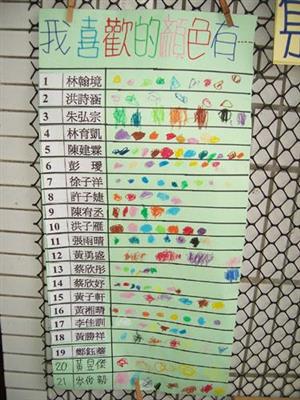 我喜歡的顏色有...
1 林翰境
2 洪詩涵
3 朱弘宗
4 林育凱
5 陳建霖
6 彭瑷
7 徐子洋
8 許子婕
9 陳宥丞
10 洪子雁
11 張雨晴
12 黃勇盛
13 蔡欣彤
14 蔡欣妤
15 黃子軒
16 黃湘晴
17 李佳訓
18 黃勝祥
19 鄭鈺蓁
20 黃昱傑
21